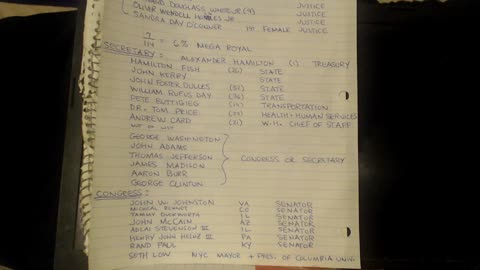 DOUGLASS WHITE JR (9) JUSTICE
OLIVER WENDELL HOLMES JR JUSTICE
SANDRA DAY O'CONNOR 1st FEMALE JUSTICE
7
114 = 6% MEGA ROYAL
SECRETARY: ALEXANDER HAMILTON (1) TREASURY
HAMILTON FISH (26) STATE
JOHN KERRY STATE
JOHN FOSTER DULLES (52) STATE
WILLIAM RUFUS DAY (36) STATE
PETE BUTTIGIEG TRANSPORTATION
DR. TOM PRICE (23) HEALTH + HUMAN SERVICES
ANDREW CARD (21) W.H. CHIEF OF STAFF
GEORGE WASHINGTON
JOHN ADAMS
THOMAS JEFFERSON
JAMES MADISON } CONGRESS OR SECRETARY
AARON BURR
GEORGE CLINTON
CONGRESS:
JOHN W. JOHNSTON VA SENATOR
MICHEAL BENNET CO SENATOR
TAMMY DUCKWORTH IL SENATOR
JOHN McCAIN AZ SENATOR
ADLAI STEVENSON II IL SENATOR
HENRY JOHN HEINZ III PA SENATOR
RAND PAUL KY SENATOR
SETH LOW NYC MAYOR + PRES. OF COLUMBIA UNIV.